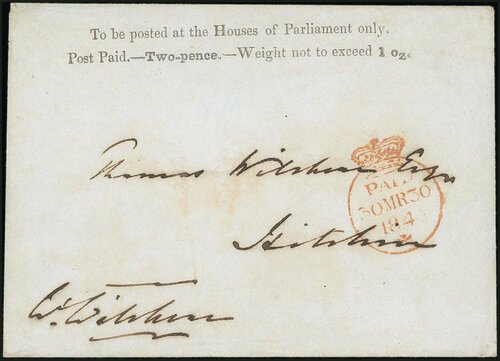 To be posted at the Houses of Parliament only.
Post Paid.—Two-pence.—Weight not to exceed 1 oz.
Thomas Wilshere Esqr
PAID
30MR30
184
Hitchin
W. Wilshere